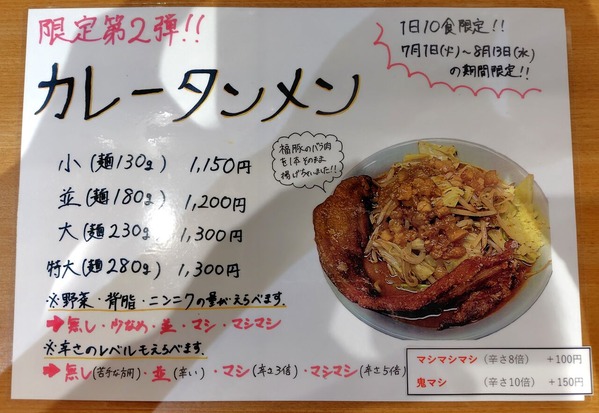 限定第2弾!!
1日10食限定!!
7月1日(火)～8月13日(水)
の期間限定!!
カレータンメン
小(麺130g) 1,150円
並(麺180g) 1,200円
大(麺230g) 1,300円
特大(麺280g) 1,300円
福豚のバラ肉
を1本そのまま
揚げちゃいました!!
※野菜・背脂・ニンニクの量がえらべます。
➡無し・少なめ・並・マシ・マシマシ
※辛さのレベルもえらべます。
➡無し(苦手な方用)・並(辛い)・マシ(辛さ3倍)・マシマシ(辛さ5倍)
マシマシマシ (辛さ8倍) +100円
鬼マシ (辛さ10倍) +150円